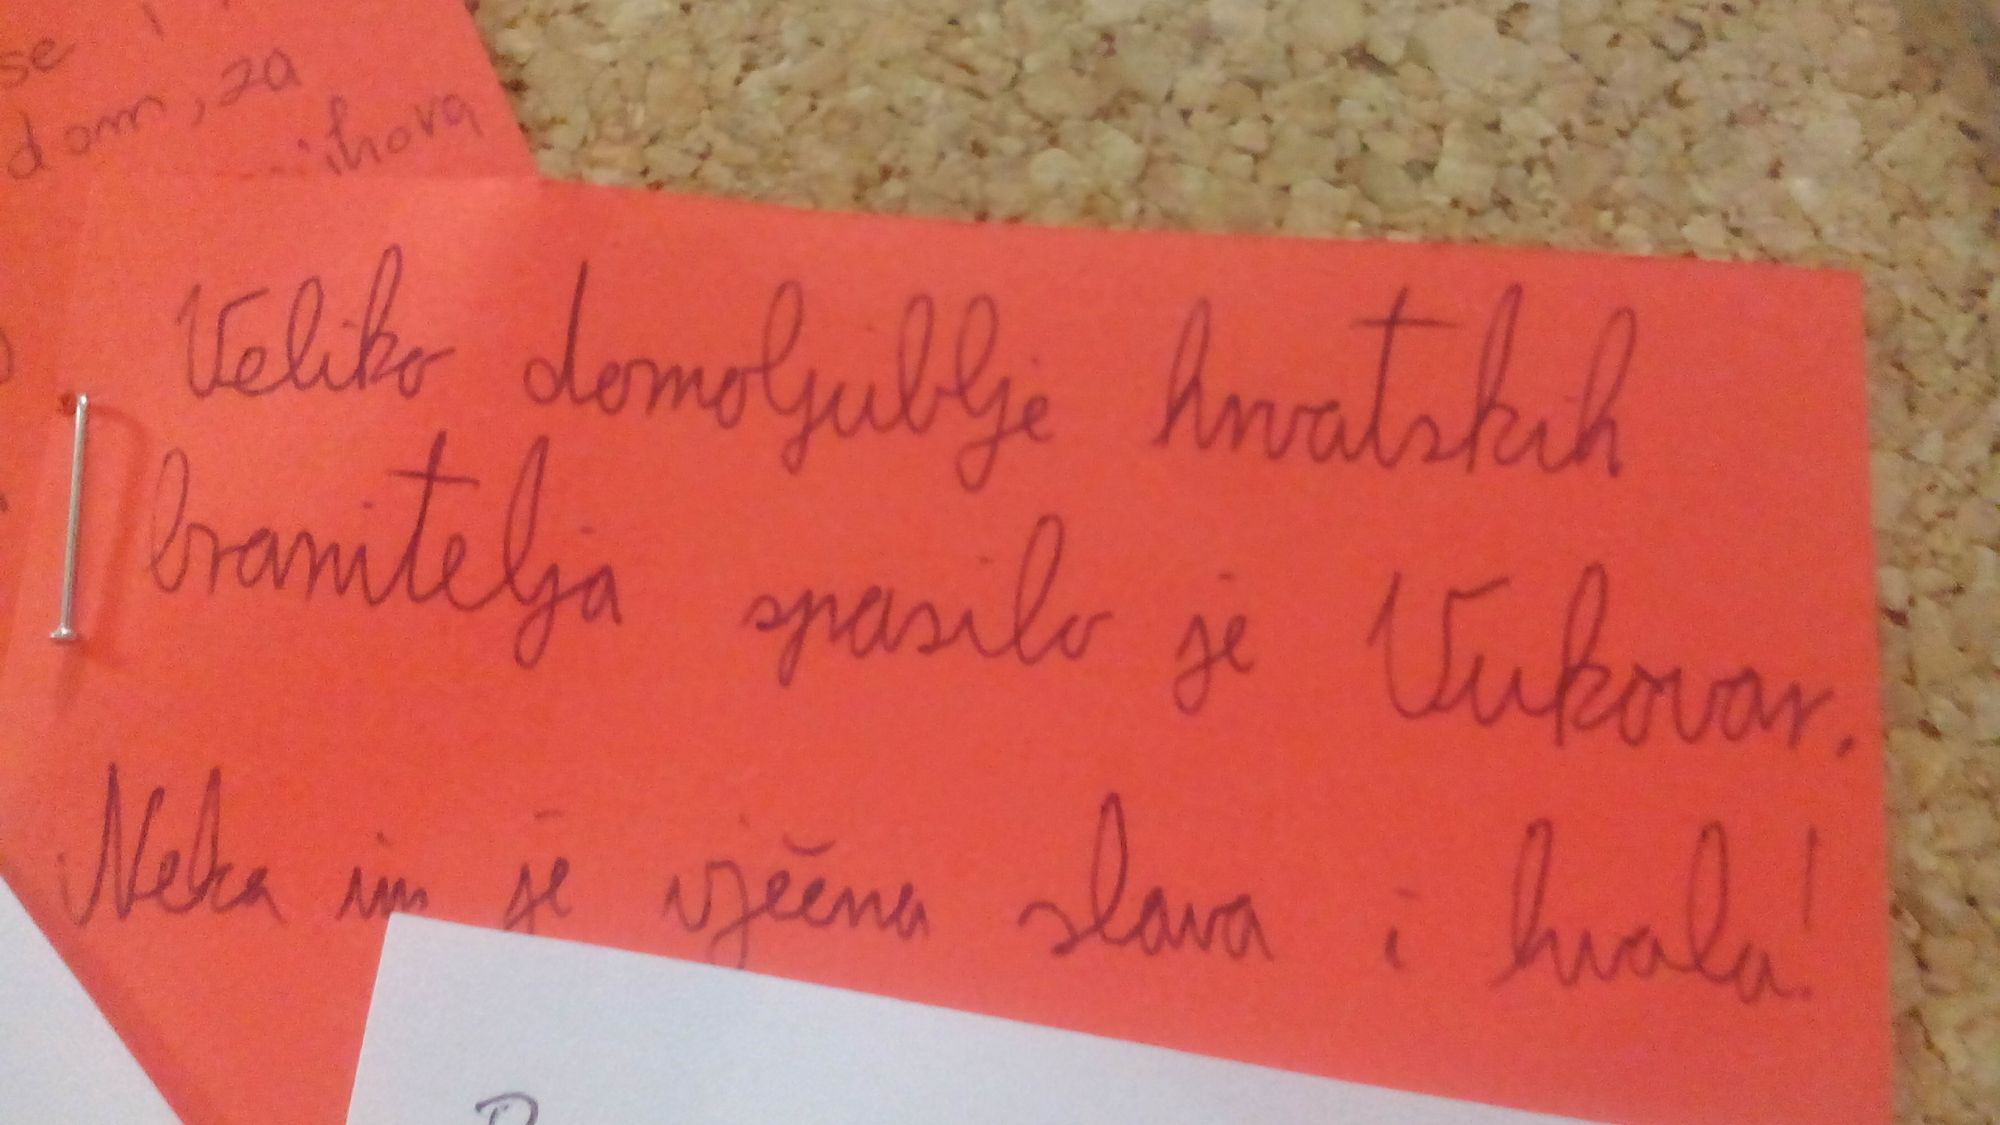 se
dom, za
Veliko domoljublje hrvatskih
branitelja spasilo je Vukovar.
Neka im je vječna slava i hvala!